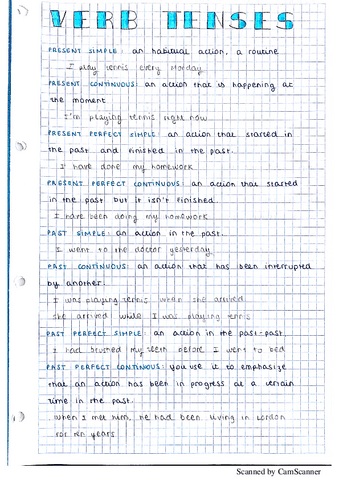 VERB TENSES
PRESENT SIMPLE: an habitual action, a routine
I play tennis every Monday
PRESENT CONTINUOUS: an action that is happening at
the moment
I'm playing tennis right now
PRESENT PERFECT SIMPLE: an action that started in
the past and finished in the past.
I have done my homework
PRESENT PERFECT CONTINUOUS: an action that started
in the past but it isn't finished.
I have been doing my homework
PAST SIMPLE: an action in the past.
I went to the doctor yesterday
PAST CONTINUOUS: an action that has been interrupted
by another.
I was playing tennis when she arrived
She arrived while I was playing tennis
PAST PERFECT SIMPLE: an action in the past-past
I had brushed my teeth before I went to bed
PAST PERFECT CONTINUOUS: you use it to emphasize
that an action has been in progress at a certain
time in the past.
When I met him, he had been living in London
for ten years
Scanned by CamScanner